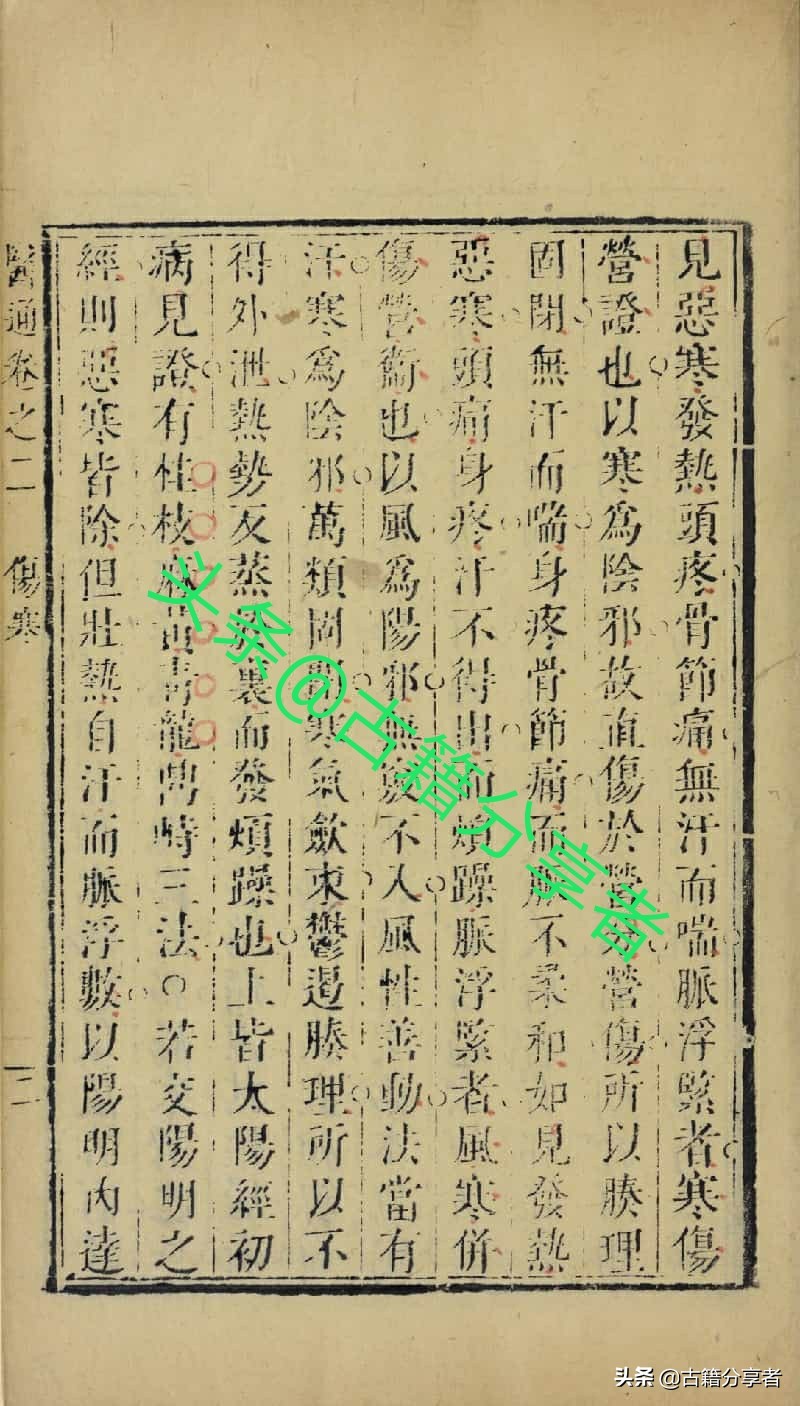 見惡寒發熱頭疼骨節痛無汗而喘脈浮緊者寒傷
營證也以寒爲陰邪故直傷於營分營傷所以腠理
固閉無汗而喘身疼骨節痛而脈不柔和如見發熱
惡寒頭痛身疼汗不得出而煩躁脈浮緊者風寒併
傷營衞也以風爲陽邪無竅不入風性善動法當有
汗寒爲陰邪萬類固閉寒氣歛束鬱遏腠理所以不
得外泄熱勢反蒸於裏而發煩躁也上皆太陽經初
病見證有桂枝麻黃青龍鼎峙三法○若交陽明之
經則惡寒皆除但壯熱自汗而脈浮數以陽明內達
醫通卷之二 傷寒 二
头条@古籍分享者
头条 @古籍分享者